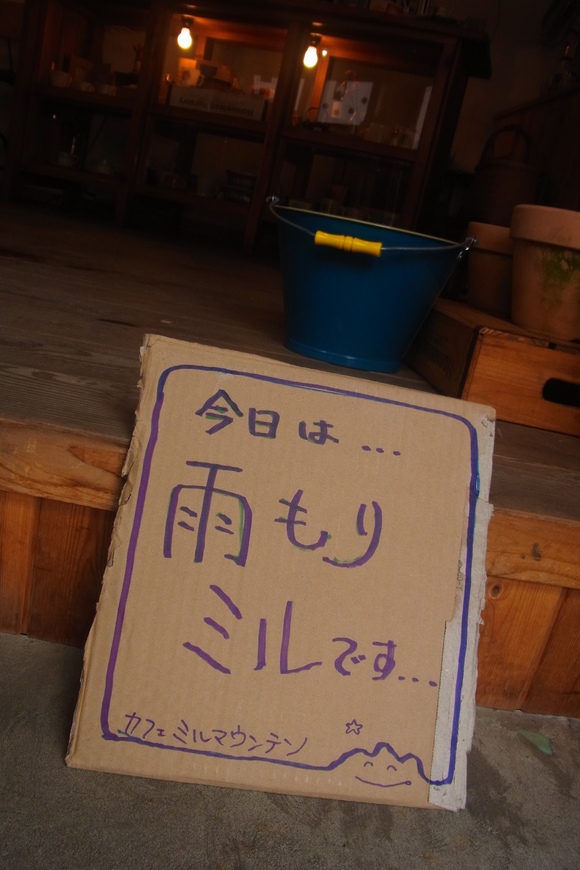 今日は...
雨もり
ミルです...
カフェ ミルマウンテン